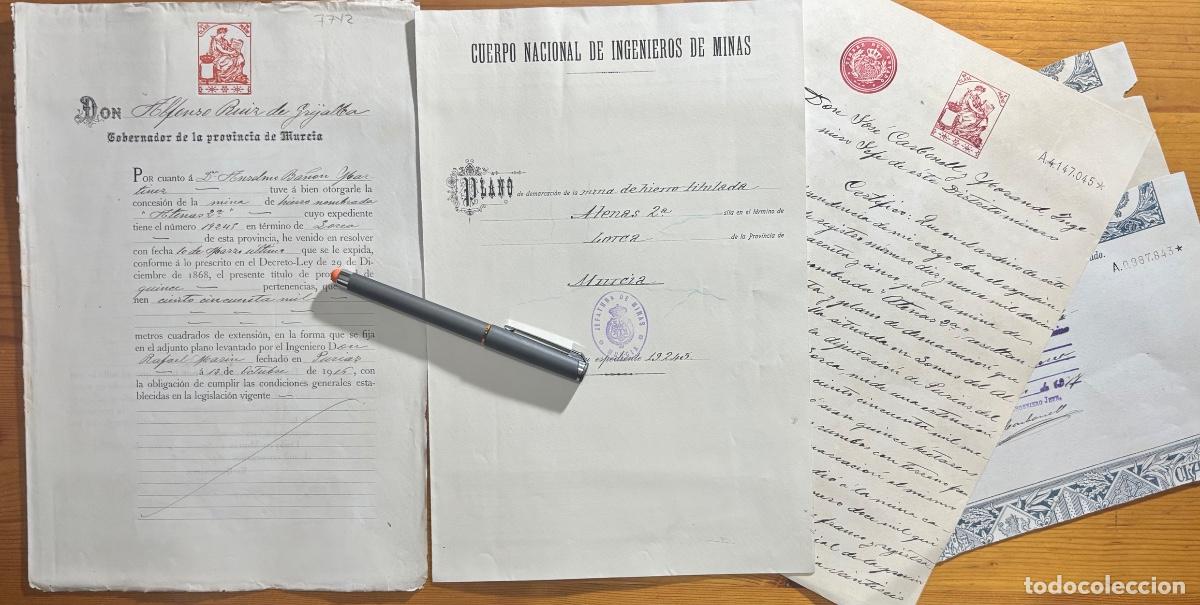 7742
DON Alfonso Ruiz de Grijalba
Gobernador de la provincia de Murcia
POR cuanto á D. Anselmo Bañon Mar
tinez tuve á bien otorgarle la
concesión de la mina de hierro nombrada
"Atenas 2ª" cuyo expediente
tiene el número 19245 en término de Lorca
de esta provincia, he venido en resolver
con fecha 10 de Marzo último que se le expida,
conforme á lo prescrito en el Decreto-Ley de 29 de Di-
ciembre de 1868, el presente título de pro de
quince pertenencias, que
nen ciento cincuenta mil
metros cuadrados de extensión, en la forma que se fija
en el adjunto plano levantado por el Ingeniero Don
Rafael Marin fechado en Purias
á 12 de Octubre de 1915, con
la obligación de cumplir las condiciones generales esta-
blecidas en la legislación vigente
CUERPO NACIONAL DE INGENIEROS DE MINAS
PLANO de demarcación de la mina de hierro titulada
Atenas 2ª sita en el término de
Lorca de la Provincia de
Murcia
JEFATURA DE MINAS
expediente 19245
TIMBRE DEL ESTADO
A.4147.045*
Don José Carbonell y Morand Inge
niero Jefe de este Distrito minero
Certifico: Que en el archivo de esta
dependencia de mi cargo obra el expedien
registro número diez y nueve mil doscien
cuarenta y cinco para la mina de
nombrada "Atenas 2ª", resultan
y plano de demarcación que
situada en
diputación de Purias del
Lorca mide una extensión
ciento cincuenta mil me
quince hectáreas
rumbo con terreno fran
el mismo
á la mina
número doce mil qui
franco y registro
veintiseis
A.0.987.843*
INGENIERO JEFE,
todocoleccion